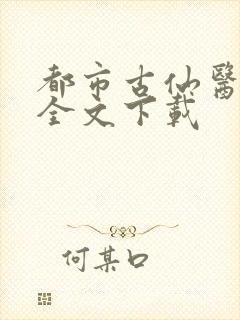 都市古仙醫
全文下載
何某口